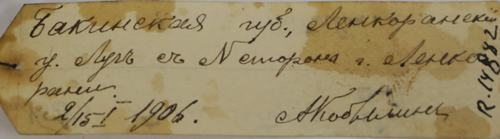 Бакинская губ., Ленкоранск.
у. Лугъ съ N стороны г. Ленко
рани.
2/15-I 1906. АКобылин
R.14842